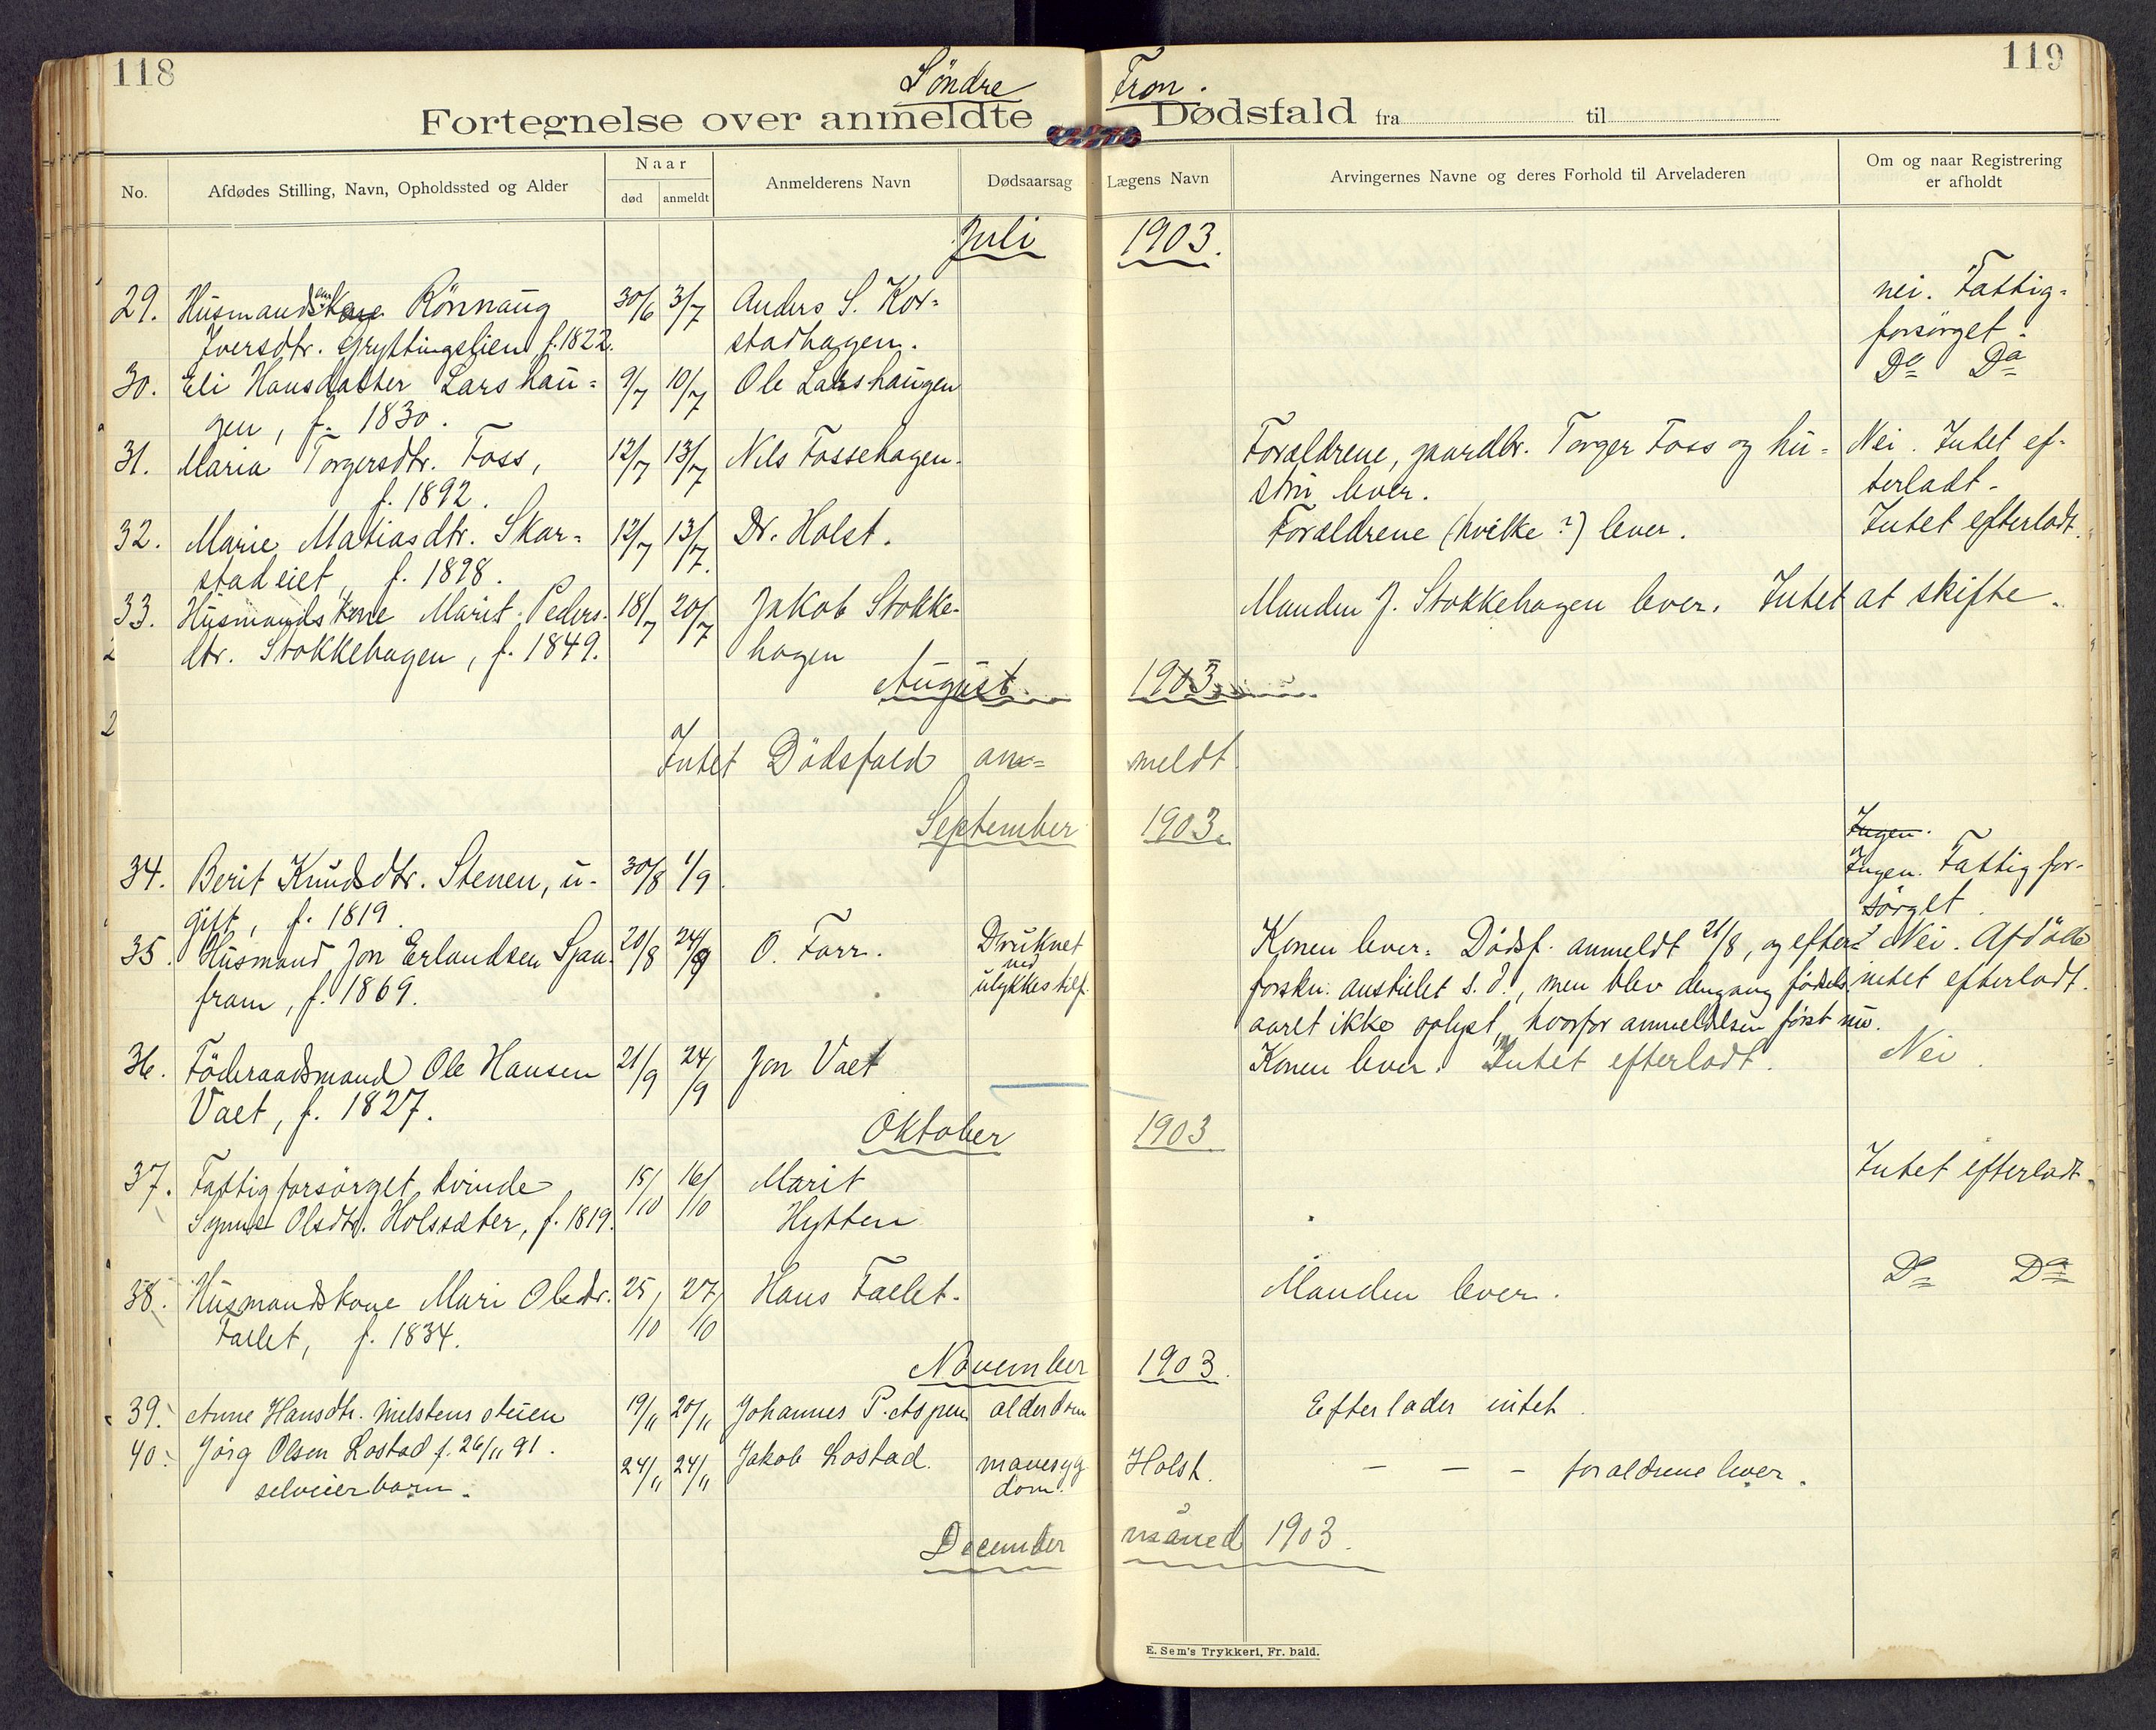 118
119
Søndre Fron.
Fortegnelse over anmeldte Dødsfald fra til
No.
Afdødes Stilling, Navn, Opholdssted og Alder
Naar
død
anmeldt
Anmelderens Navn
Dødsaarsag
Lægens Navn
Arvingernes Navne og deres Forhold til Arveladeren
Om og naar Registrering
er afholdt
Juli 1903.
29. Husmandsenke Rönnaug 30/6 3/7 Anders S. Kor= nei. Fattig=
Iversdtr. Gryttingslien f. 1822. stadhagen. forsörget.
30. Eli Hansdatter Larshau= 9/7 10/7 Ole Larshaugen Do Do
gen, f. 1830.
31. Maria Torgersdtr. Foss, 12/7 13/7 Nils Fossehagen. Forældrene, gaardbr. Torger Foss og hu= Nei. Intet ef=
f. 1892. stru lever. terladt.
32. Marie Matiasdtr. Skar= 12/7 13/7. Dr. Holst. Forældrene (hvilke?) lever. Intet efterladt.
stadeiet, f. 1898.
33. Husmandskone Marit Peders. 18/7 20/7 Jakob Stokke- Manden J. Stokkehagen lever. Intet at skifte.
dtr. Stokkehagen, f. 1849. hagen
August. 1903.
Intet Dödsfald an= meldt
September 1903.
Ingen.
34. Berit Knudsdtr. Stenen, u- 30/8 1/9 Ingen. Fattigfor-
gift, f. 1819. sörget.
35. Husmand Jon Erlandsen 20/8 24/9 O. Farr. Druknet Konen lever. Dödsf. anmeldt 21/8, og efter= Nei. Afdöde
fram, f. 1869. ved ulykkestilf. forskn. anstillet s. d., men blev dengang födsels intet efterladt.
aaret ikke oplyst, hvorfor anmeldelsen først nu.
36. Föderaadsmand Ole Hansen 21/9 24/9 Jon Vaet Konen lever. Intet efterladt. Nei.
Vaet, f. 1827.
Oktober 1903
37. Fattigforsörget kvinde 15/10 16/10 Marit Intet efterladt.
Olsdtr. Holssæter, f. 1819. Hytten
38. Husmandskone Mari Olsdr. 25/10 27/10 Hans Faelet. Manden lever. Do Do
Faelet, f. 1834.
November 1903.
39. Anne Hansdtr. 19/11 20/11 Johannes P. Aspen alderdom Efterlader intet.
40. Jörg Olsen Lostad f. 26/11 91. 24/11 24/11 Jakob Lostad. mavesyg Holst. — — — forældrene lever.
selveierbarn. dom.
December måned 1903.
E. Sem's Trykkeri, Fr. hald.